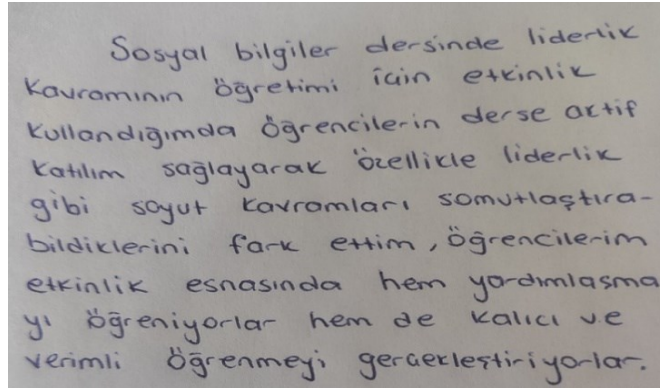 Sosyal bilgiler dersinde liderlik
kavramının öğretimi için etkinlik
kullandığımda öğrencilerin derse aktif
katılım sağlayarak özellikle liderlik
gibi soyut kavramları somutlaştıra-
bildiklerini fark ettim, öğrencilerim
etkinlik esnasında hem yardımlaşma
yı öğreniyorlar hem de kalıcı ve
verimli öğrenmeyi gerçekleştiriyorlar.